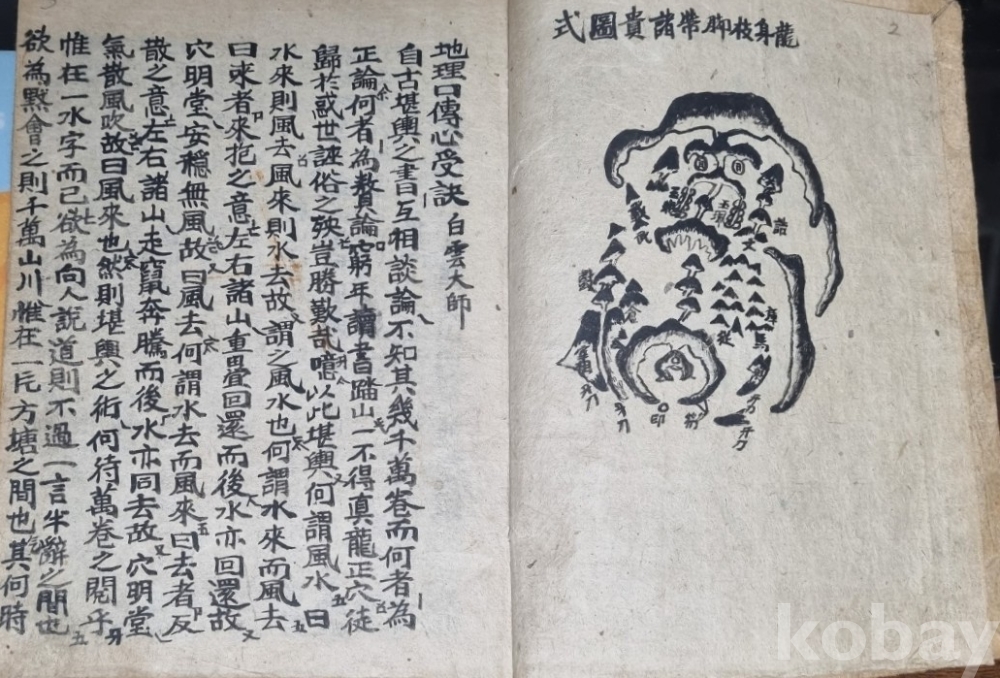 龍身枝脚帶諸貴圖式
2
玉
印
馬
倉
地理口傳心受訣 白雲大師
自古堪輿之書互相談論不知其幾千萬卷而何者為
正論何者為贅論窮年讀書踏山一不得眞龍正穴徒
歸於惑世誣俗之殃豈勝歎哉噫以此堪輿何謂風水曰
水來則風去風來則水去故謂之風水也何謂水來而風去
曰來者來抱之意左右諸山重疊回還而後水亦回還故
穴明堂安穩無風故曰風去何謂水去而風來曰去者反
散之意左右諸山走竄奔騰而後水亦同去故穴明堂
氣散風吹故曰風來也然則堪輿之術何待萬卷之閱乎
惟在一水字而已欲為向人說道則不過一言半辭之間也
欲為黙會之則千萬山川惟在一片方塘之間也其何時
kobay